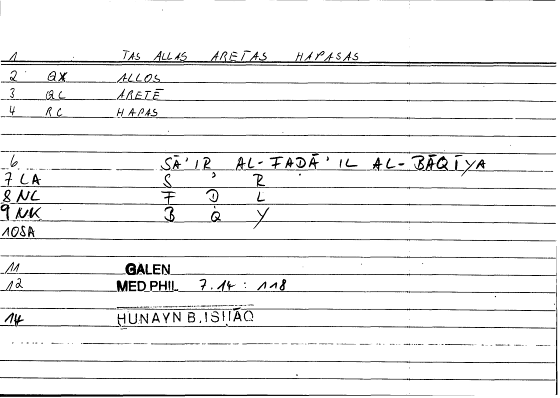 1 TAS ALLAS ARETAS HAPASAS
2 QX ALLOS
3 QC ARETĒ
4 RC HAPAS
6 SĀ'IR AL-FADĀ'IL AL-BĀQĪYA
7 LA S ' R
8 NL F D L
9 NK B Q Y
10SA
11 GALEN
12 MED PHIL 7.14 : 118
14 HUNAYN B. ISHĀQ